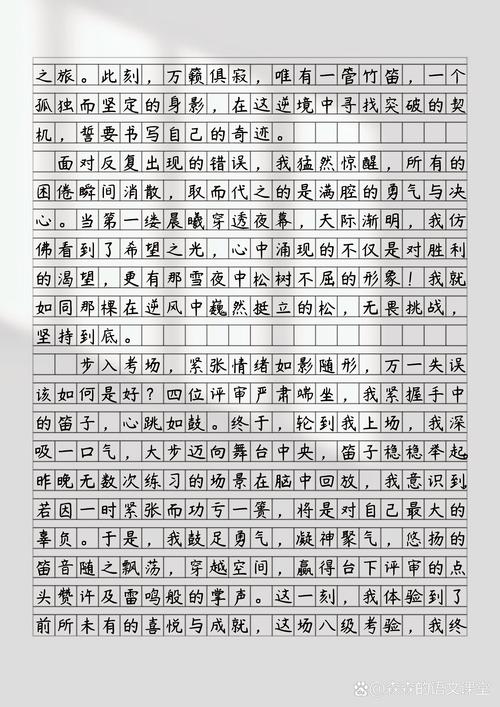 之旅。此刻，万籁俱寂，唯有一管竹笛，一个
孤独而坚定的身影，在这逆境中寻找突破的契
机，誓要书写自己的奇迹。
面对反复出现的错误，我猛然惊醒，所有的
困倦瞬间消散，取而代之的是满腔的勇气与决
心。当第一缕晨曦穿透夜幕，天际渐明，我仿
佛看到了希望之光，心中涌现的不仅是对胜利
的渴望，更有那雪夜中松树不屈的形象！我就
如同那棵在逆风中巍然挺立的松，无畏挑战，
坚持到底。
步入考场，紧张情绪如影随形，万一失误
该如何是好？四位评审严肃端坐，我紧握手中
的笛子，心跳如鼓。终于，轮到我上场，我深
吸一口气，大步迈向舞台中央，笛子稳稳举起
昨晚无数次练习的场景在脑中回放，我意识到
若因一时紧张而功亏一篑，将是对自己最大的
辜负。于是，我鼓足勇气，凝神聚气，悠扬的
笛音随之飘荡，穿越空间，赢得台下评审的点
头赞许及雷鸣般的掌声。这一刻，我体验到了
前所未有的喜悦与成就，这场八级考验，我终
@森森的语文课堂